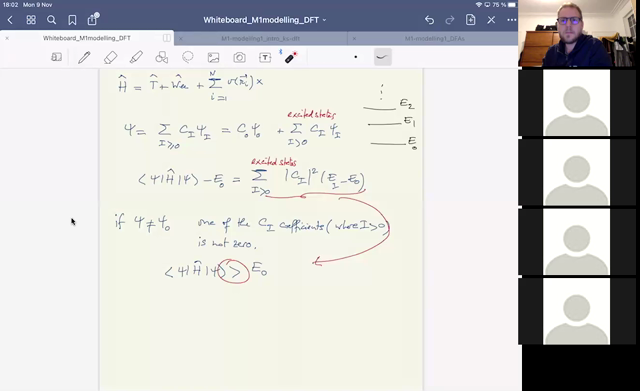 18:02 Mon 9 Nov
75 %
Whiteboard_M1modelling_DFT
Whiteboard_M1modelling_DFT
M1-modelling1_intro_ks-dft
M1-modelling1_DFAs
Ĥ = T̂ + Ŵee + Σ_{i=1}^{N} v(r⃗i) x
Ψ = Σ_{I≥0} C_I Ψ_I = C_0 Ψ_0 + Σ_{I>0} C_I Ψ_I
excited states
E_2
E_1
E_0
excited states
⟨Ψ|Ĥ|Ψ⟩ − E_0 = Σ_{I>0} |C_I|² (E_I − E_0)
if Ψ ≠ Ψ_0 one of the C_I coefficients (where I>0)
is not zero.
⟨Ψ|Ĥ|Ψ⟩ > E_0